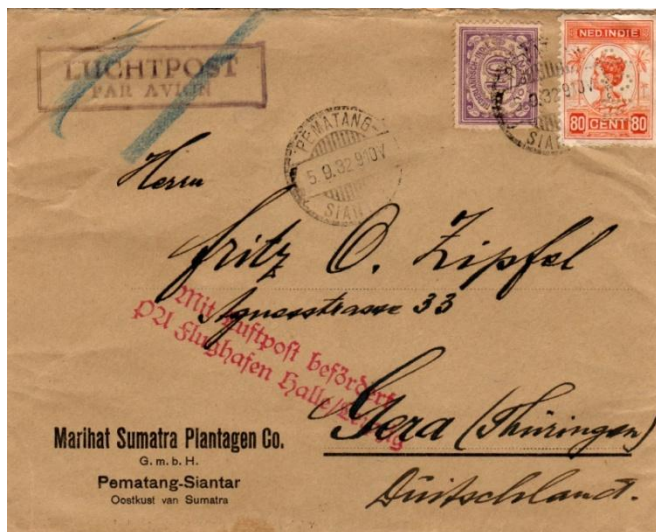 LUCHTPOST
PAR AVION
NED.INDIE
80 CENT 80
PEMATANG-
5.9.32.910V
SIAN
Herrn
Fritz O. Zipfel
Agnesstrasse 33
Mit Luftpost befördert
PA Flughafen Halle/Leipzig
Gera (Thüringen)
Duitschland.
Marihat Sumatra Plantagen Co.
G. m. b. H.
Pematang-Siantar
Oostkust van Sumatra